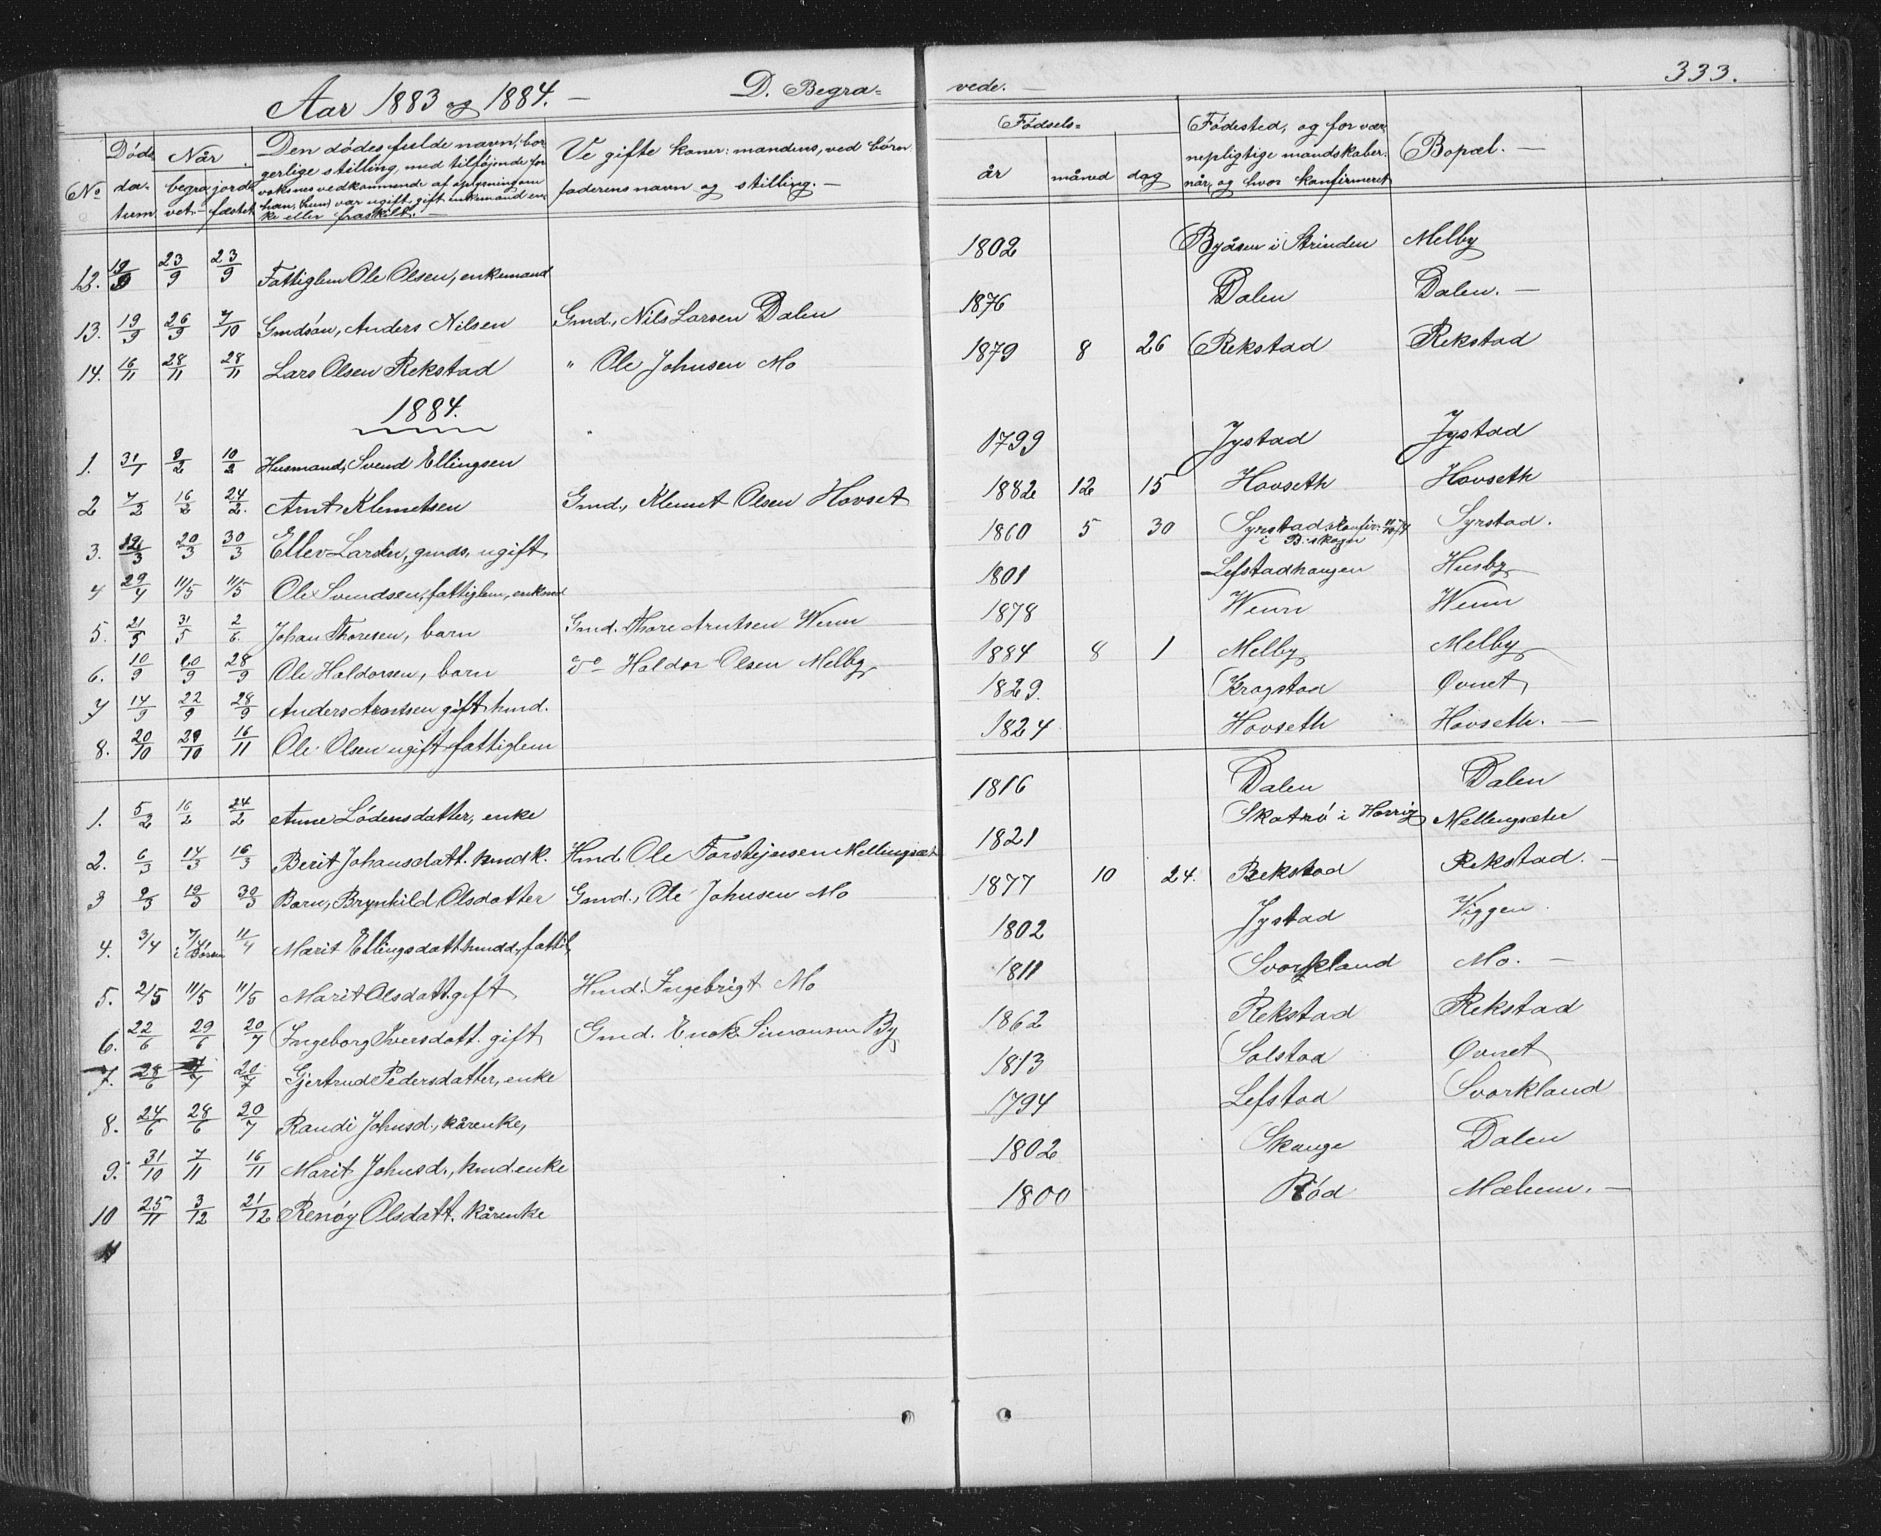 333.
Aar 1883 og 1884. — D. Begra= vede. —
No
Døds datum
Når begravet jordfæstet
Den dødes fulde navn, borgerlige stilling, med tilføjende for voksnes vedkommende af oplysning om han, (hun) var ugift, gift, enkemand, enke eller fraskilt. —
Ve gifte koner: mandens, ved børn faderens navn og stilling. —
Fødsels= år måned dag
Fødested, og for værnepligtige mandskaber: når, og hvor konfirmeret
Bopæl. —
12. 19/9 23/9 23/9 Fattiglem Ole Olsen, enkemand 1802 Byåsen i Strinden Melby
13. 19/9 26/9 7/10 Gmdsøn, Anders Nilsen Gmd., Nils Larsen Dalen 1876 Dalen Dalen. —
14. 16/11 28/11 28/11 Lars Olsen Rekstad " Ole Johnsen Mo 1879 8 26 Rekstad Rekstad
1884.
1. 31/1 9/2 10/2 Husmand, Svend Ellingsen 1799 Jystad Jystad
2 7/2 16/2 24/2. Arnt Klemetsen Gmd., Klemet Olsen Hovset 1882 12 15 Hovseth Hovseth
3. 12/3 20/3 30/3 Ellev Larsen, gmds, ugift 1860 5 30 Syrstad konfir: i B:skogn Syrstad.
4 29/4 11/5 11/5 Ole Svendsen, fattiglem, enkmd 1801 Lefstadhaugen Husby
5. 21/5 31/5 2/6. Johan Thoresen, barn Gmd. Thore Arntsen Wenn 1878 Wenn Wenn
6. 10/9 20/9 28/9 Ole Haldorsen, barn do Haldor Olsen Melby 1884 8 1 Melby Melby
7 14/9 22/9 28/9 Anders Arntsen gift hmd. 1829. Krogstad Øvnet
8. 20/10 29/10 16/11 Ole Olsen ugift fattiglem 1824 Hovseth Hovseth. —
1. 5/2 16/2 24/2 Anne Lødensdatter, enke 1816 Dalen Dalen
2. 6/3 14/3 16/3 Berit Johansdatt. hmdk. Hmd. Ole Torstejnsen Mellingsæt 1821 Skatrø i Hovrig Mellingsæter
3 9/3 19/3 30/3 Barn, Brynhild Olsdatter Gmd., Ole Johnsen Mo 1877 10 24. Rekstad Rekstad. —
4. 3/4 7/4 i Børsen 11/4 Marit Ellingsdatt hmdd., fattil. 1802 Jystad Viggen
5. 2/5 11/5 11/5 Marit Olsdatt. gift Hmd. Ingebrigt Mo 1811 Svorkland Mo. —
6. 22/6 29/6 20/7 Ingeborg Iversdatt. gift Gmd. Enok Simonsen By 1862 Rekstad Rekstad
7. 28/6 20/7 Gjertrud Pedersdatter, enke 1813 Solstad Øvnet
8. 24/6 28/6 20/7 Randi Johnsd., kårenke, 1794 Lefstad Svorkland
9. 31/10 7/11 16/11 Marit Johnsd., hmd.enke 1802 Skauge Dalen
10 25/11 3/12 21/12 Renøy Olsdatt. kårenke 1800 Rød Mælum. —